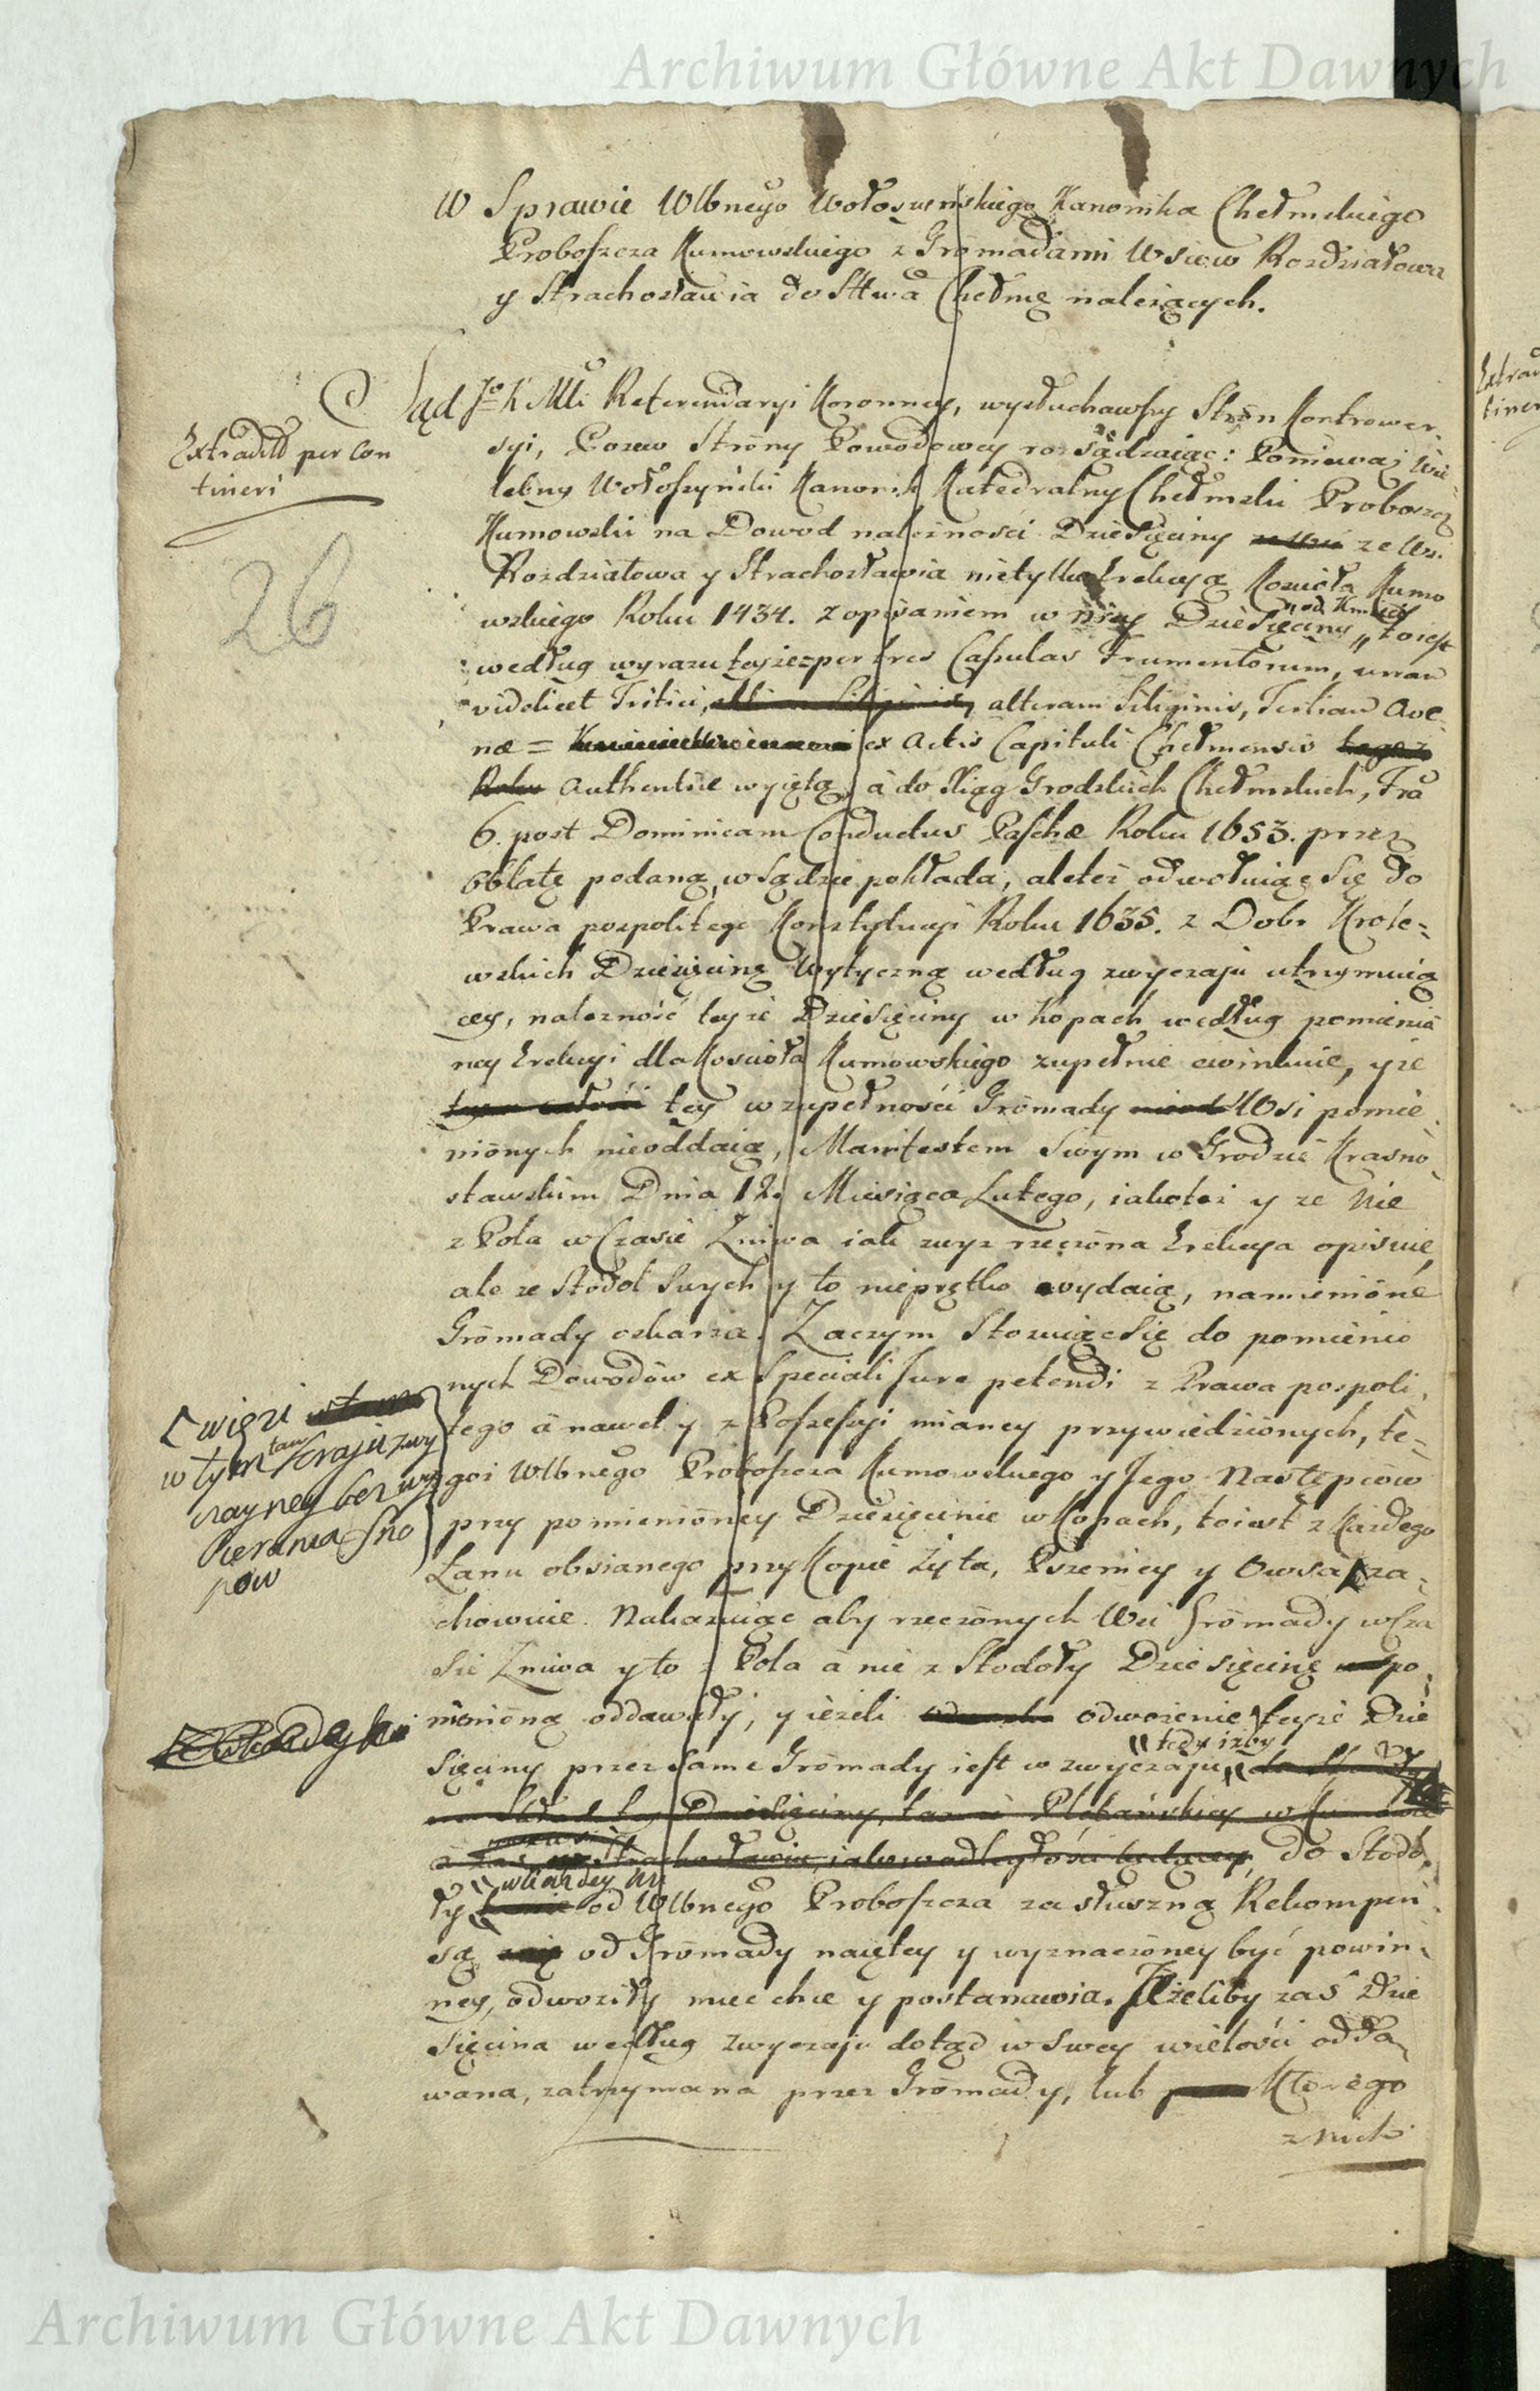 Archiwum Główne Akt Dawnych
W Sprawie Wlbnego Wołoszyńskiego Kanonika Chełmskiego
Proboszcza Kumowskiego z Gromadami Wsiow Rozdziałowa
y Strachosławia do Sttwa Chełmę należących.
Sąd Jo K Mći Referendaryi Koronney, wysłuchawszy Strön Kontrower
syi, Pozew Strony Powodowey rozsądzaiąc: Ponieważ Wie
lebny Wołoszyński Kanonik Katedralny Chełmski Proboszcz
Kumowski na Dowod należności Dziesięciny ze Wsi
Rozdziałowa y Strachosławia nietylko Erekcyą Kościoła Kumo
wskiego Roku 1434. z opisaniem w niey Dziesięciny od Kmieci toiest
według wyrazu teyże per tres Capulas Frumentorum, unam
videlicet Tritici, alteram Siliginis, Tertiam Ave
næ = ex Actis Capituli Chełmensis
Authentice wyiętą, à do Xiąg Grodzkich Chełmskich, Fra
6. post Dominicam Conductus Paschæ Roku 1653. przez
oblatę podaną, w Sądzie pokłada, aleteż odwołuiąc się do
Prawa pospolitego Konstytucyi Roku 1635. z Dobr Krole=
wskich Dziesięcinę Wytyczną według zwyczaju utrzymuią
cey, należność teyże Dziesięciny w Kopach według pomienio
ney Erekcyi dla Kościoła Kumowskiego zupełnie ewinkuie, y że
tey w zupełności Gromady Wsi pomie
nionych nieoddaią, Manifestem Swym w Grodzie Krasno
stawskim Dnia 12. Miesiąca Lutego, iakoteż y że nie
z Pola w Czasie Żniwa iak wyż rzeczona Erekcya opisuie,
ale ze Stodoł Swych y to nieprętko wydaią, namienione
Gromady oskarża. Zaczym Stosuiąc Się do pomienio
nych Dowodow ex Speciali Jure petendi z Prawa pospoli
tego à nawet y z Possessyi mianey przywiedzionych, te=
goż Wlbnego Proboszcza Kumowskiego y Jego Następcow
przy pomienioney Dziesięcinie w Kopach, toiest z Każdego
Łanu obsianego przy Kopie Żyta, Pszenicy y Owsa za=
chowuie. Nakazuiąc aby rzeczonych Wsi Gromady w Cza
sie Żniwa y to z Pola à nie z Stodoły Dziesięcinę po
mienioną oddawały, y ieżeli odwożenie teyże Dzie
sięciny przez same Gromady iest w zwyczaiu, tedy iżby
do Stodo
ły od Wlbnego Proboszcza za słuszną Rekompen
są od Gromady naiętey y wyznaczoney być powin
ney, odwoziły mieć chce y postanawia. Jeżeliby zaś Dzie
sięcina według zwyczaju dotąd w swey wielości odda
wana, zatrzymana przez Gromady, lub Ktorego
z nich
Extradtt per Con
tineri
26
więzi
w tym tam Kraju zwy
czayney bez wy
bierania Sno
pow
Archiwum Główne Akt Dawnych